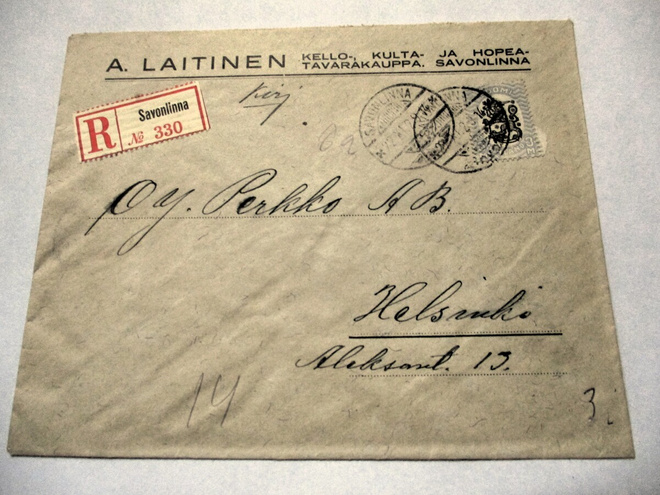 A. LAITINEN KELLO-, KULTA- JA HOPEA-
TAVARAKAUPPA. SAVONLINNA
R Savonlinna
№ 330
Kirj
SAVONLINNA
OY. Perkko AB.
Helsinki
Aleksant. 13.
14
3